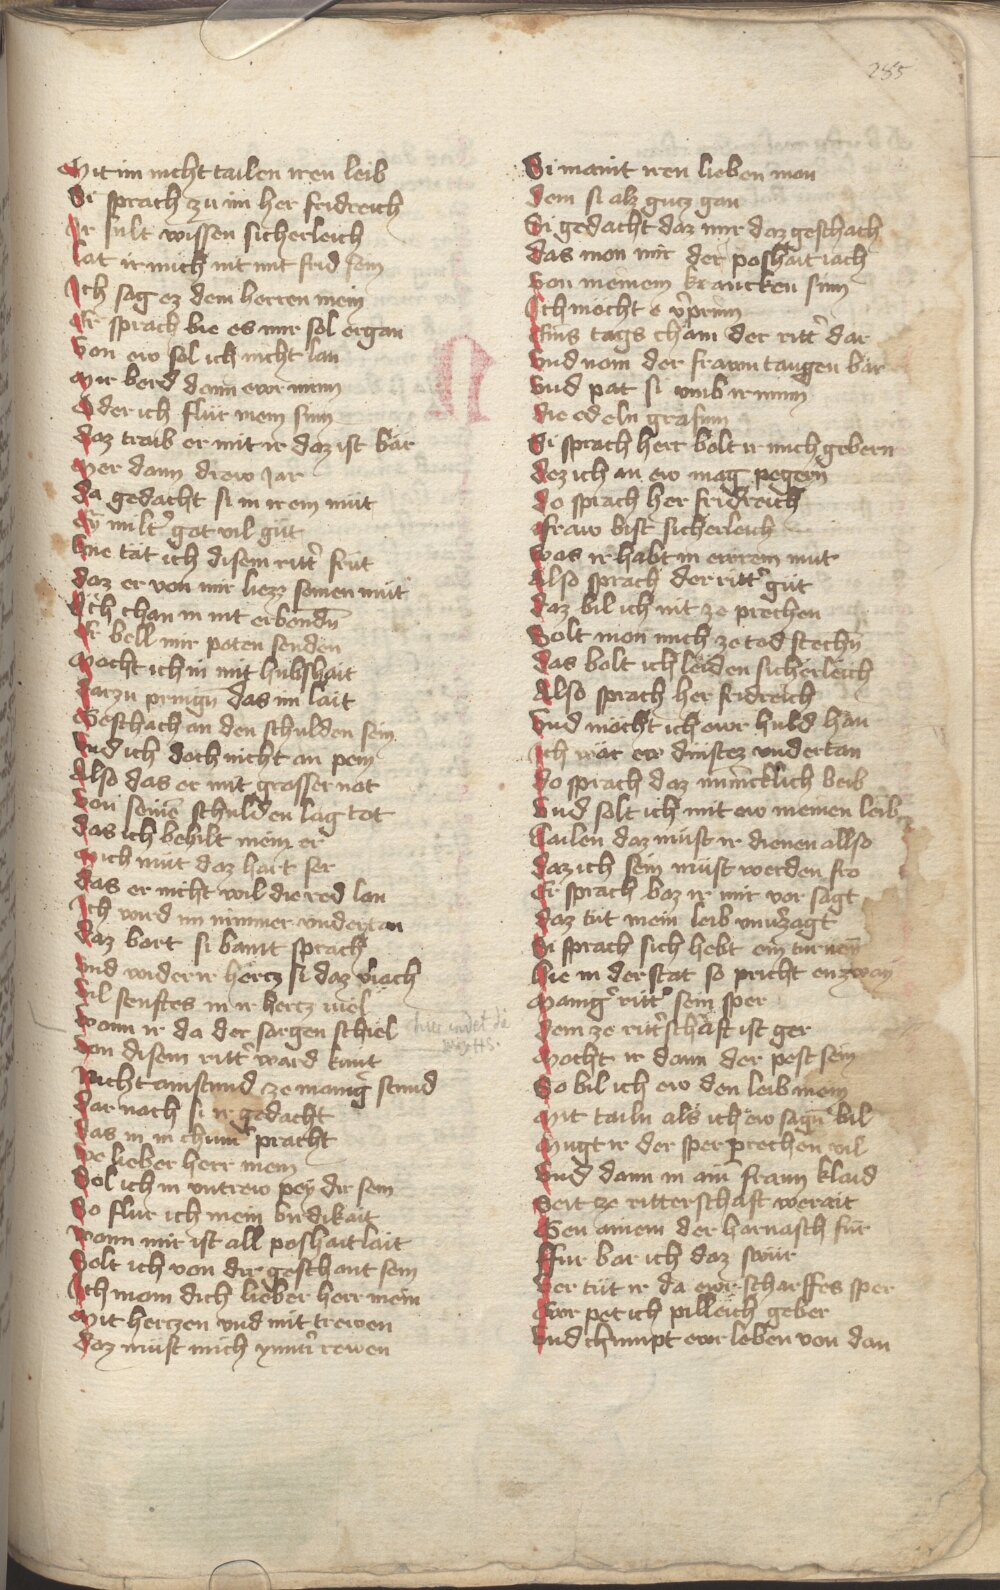 285
Mit im nicht tailen iren leib
Si sprach zu im her fridreich
Ir sult wissen sicherleich
Lat ir mich nit mit frid sein
Ich sag ez dem herren mein
Er sprach bie es mir sol ergan
Von ew sol ich nicht lan
Mir berd dann ewr minn
Oder ich flür mein sinn
Daz traib er mit ir daz ist bar
Mer dann drew Jar
Da gedacht si in irem müt
Ey milt' got vil güt
Bie tät ich disem ritt' früt
Daz er von mir liezz seinen müt
Ich chan in nit erbendn
Er bell mir poten senden
Mocht ich in mit hübshait
Darzu pringn das im lait
Geschach an den schulden sein
Und ich doch nicht an pein
Also das er mit grosser not
Von seinen schulden lag tot
Das ich behilt mein er
Mich müt daz hart ser
Das er nicht wil die red lan
Ich wird im nimmer undertan
Daz bart si bant sprach
Und wider ir hercz si daz v'iach
Vil senftes in ir hercz viel
Wann ir da der sorgen schiel
Von disem ritt' ward kunt
Nicht ainstund ze manig stund
Dar nach si ir gedacht
Das in in chum' pracht
We lieber herr mein
Sol ich in untrew pey dir sein
So flür ich mein birdikait
Wann mir ist all poshait lait
Solt ich von dir geschant sein
Ich mom dich lieber herr mein
Mit herczen und mit trewen
Daz müst mich ymm' rewen
Si maint iren lieben man
Dem si alz gutz gan
Si gedacht daz mir daz geschach
Das mon mir der poshait iach
Von meinem krancken sinn
Ich mocht e v'prinn
Eins tags cham der ritt' dar
Und nom der frawn taugen bar
Und pat si umb ir minn
Die edeln grafinn
Si sprach herr bolt ir mich gebern
Dez ich an ew mag pegern
Do sprach her fridreich
Fraw bist sicherleich
Was ir habt in ewrem mut
Also sprach der ritt' güt
Daz bil ich nit ze prechen
Solt mon mich ze tod stechn
Das bolt ich leiden sicherleich
Also sprach her fridreich
Und möcht ich ewr huld han
Ich wär ew dinstez undertan
Do sprach daz minncklich beib
Und solt ich mit ew meinen leib
Tailen daz müst ir dienen allso
Daz ich sein müst werden fro
Er sprach baz ir mir vor sagt
Daz tüt mein leib unv'zagt
Si sprach sich hebt ein turney
Hie in der stat so pricht enzway
Manig' ritt' sein sper
Dem ze ritt'schaft ist ger
Mocht ir dann der pest sein
So bil ich ew den leib mein
Mit tailn als ich ew sagn bil
Mugt ir der sper prechen vil
Und dann in ain' frawn klaid
Seit ze ritterschaft werait
Gen ainem der harnasch für
Für bar ich daz swür
Ver tüt ir da ewr scharffes sper
Ewr pet ich pilleich geber
Und chumpt ewr leben von dan